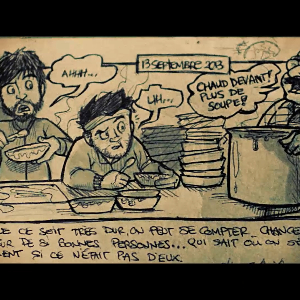 13 SEPTEMBRE 2013
AHHH...
UH...
CHAUD DEVANT!
PLUS DE
SOUPE!
CE SOIT TRÈS DUR, ON PEUT SE COMPTER CHANCE
DE SI BONNES PERSONNES... QUI SAIT OÙ ON S
SI CE N'ÉTAIT PAS D'EUX.